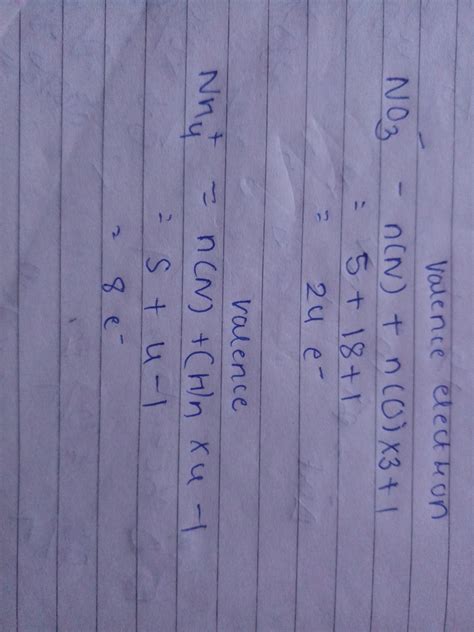 Valence electron
NO₃⁻ - n(N) + n(O)×3+1
= 5+18+1
= 24 e⁻
Valence
NH₄⁺ = n(N) +(H)n ×4 -1
= 5 + 4 -1
= 8 e⁻